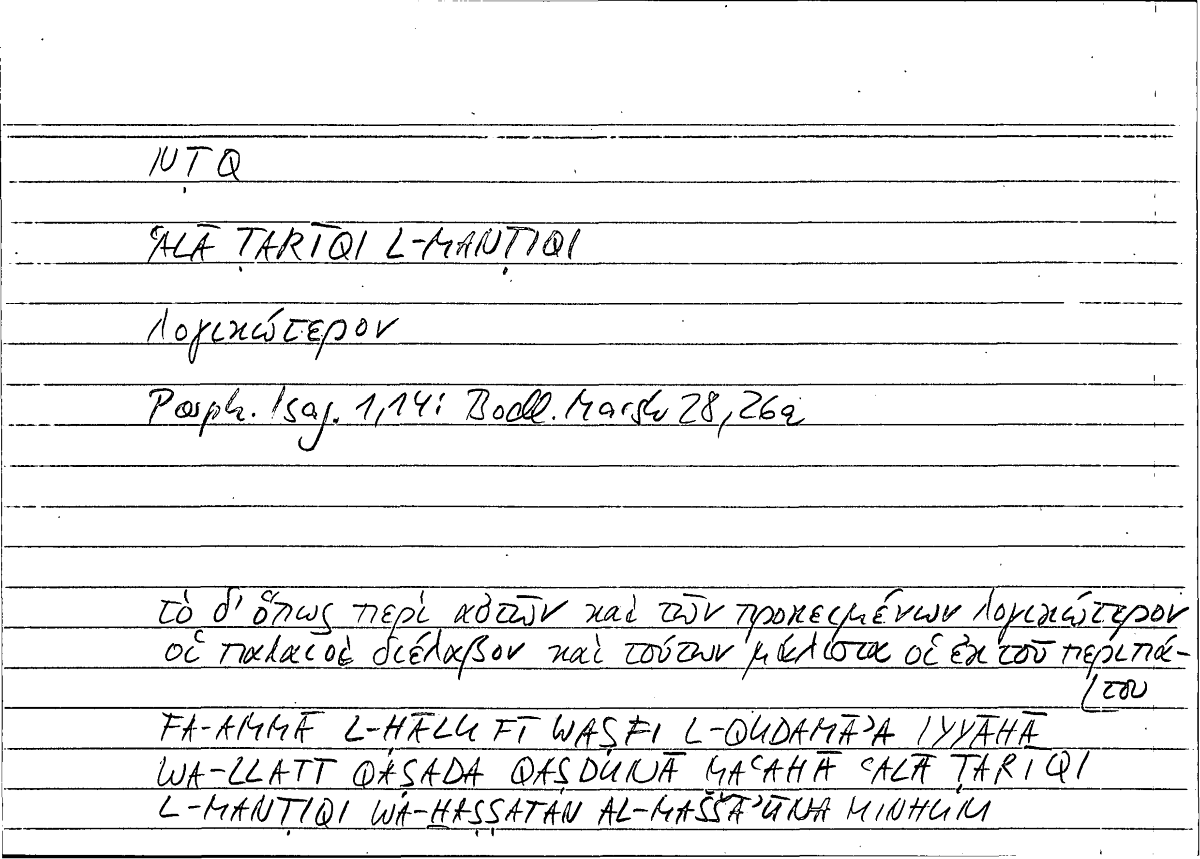 NṬQ
ʿALĀ ṬARĪQI L-MANṬIQI
λογικώτερον
Porph. Isag. 1,14: Bodl. Marsh 28,26a
τὸ δ' ὅπως περὶ αὐτῶν καὶ τῶν προκειμένων λογικώτερον
οἱ παλαιοὶ διέλαβον καὶ τούτων μάλιστα οἱ ἐκ τοῦ περιπά-
του
FA-AMMĀ L-ḤĀLU FĪ WAṢFI L-QUDAMĀʾA IYYĀHĀ
WA-LLATĪ QAṢADA QAṢDUNĀ MAʿAHĀ ʿALĀ ṬARĪQI
L-MANṬIQI WA-ḪAṢṢATAN AL-MAŠŠĀʾŪNA MINHUM